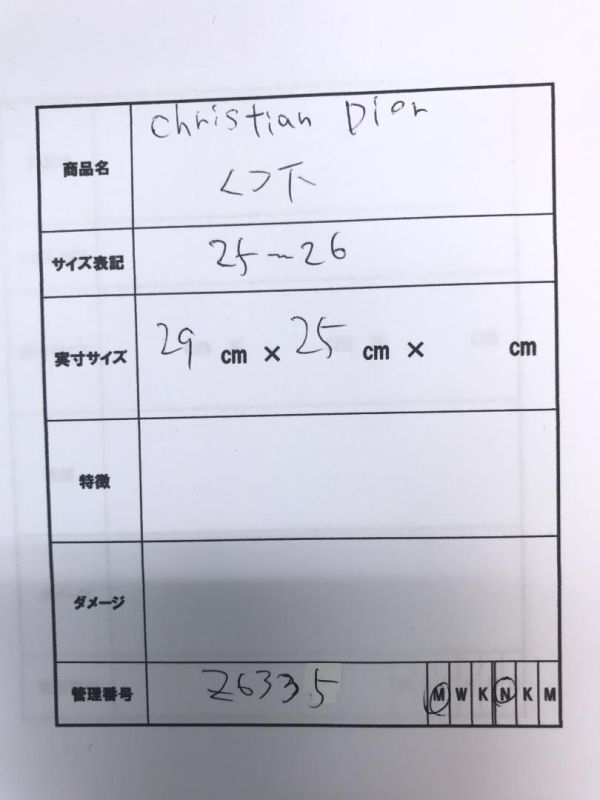 商品名
Christian Dior
くつ下
サイズ表記
25~26
実寸サイズ
29 cm × 25 cm × cm
特徴
ダメージ
管理番号
Z6335
M W K N K M